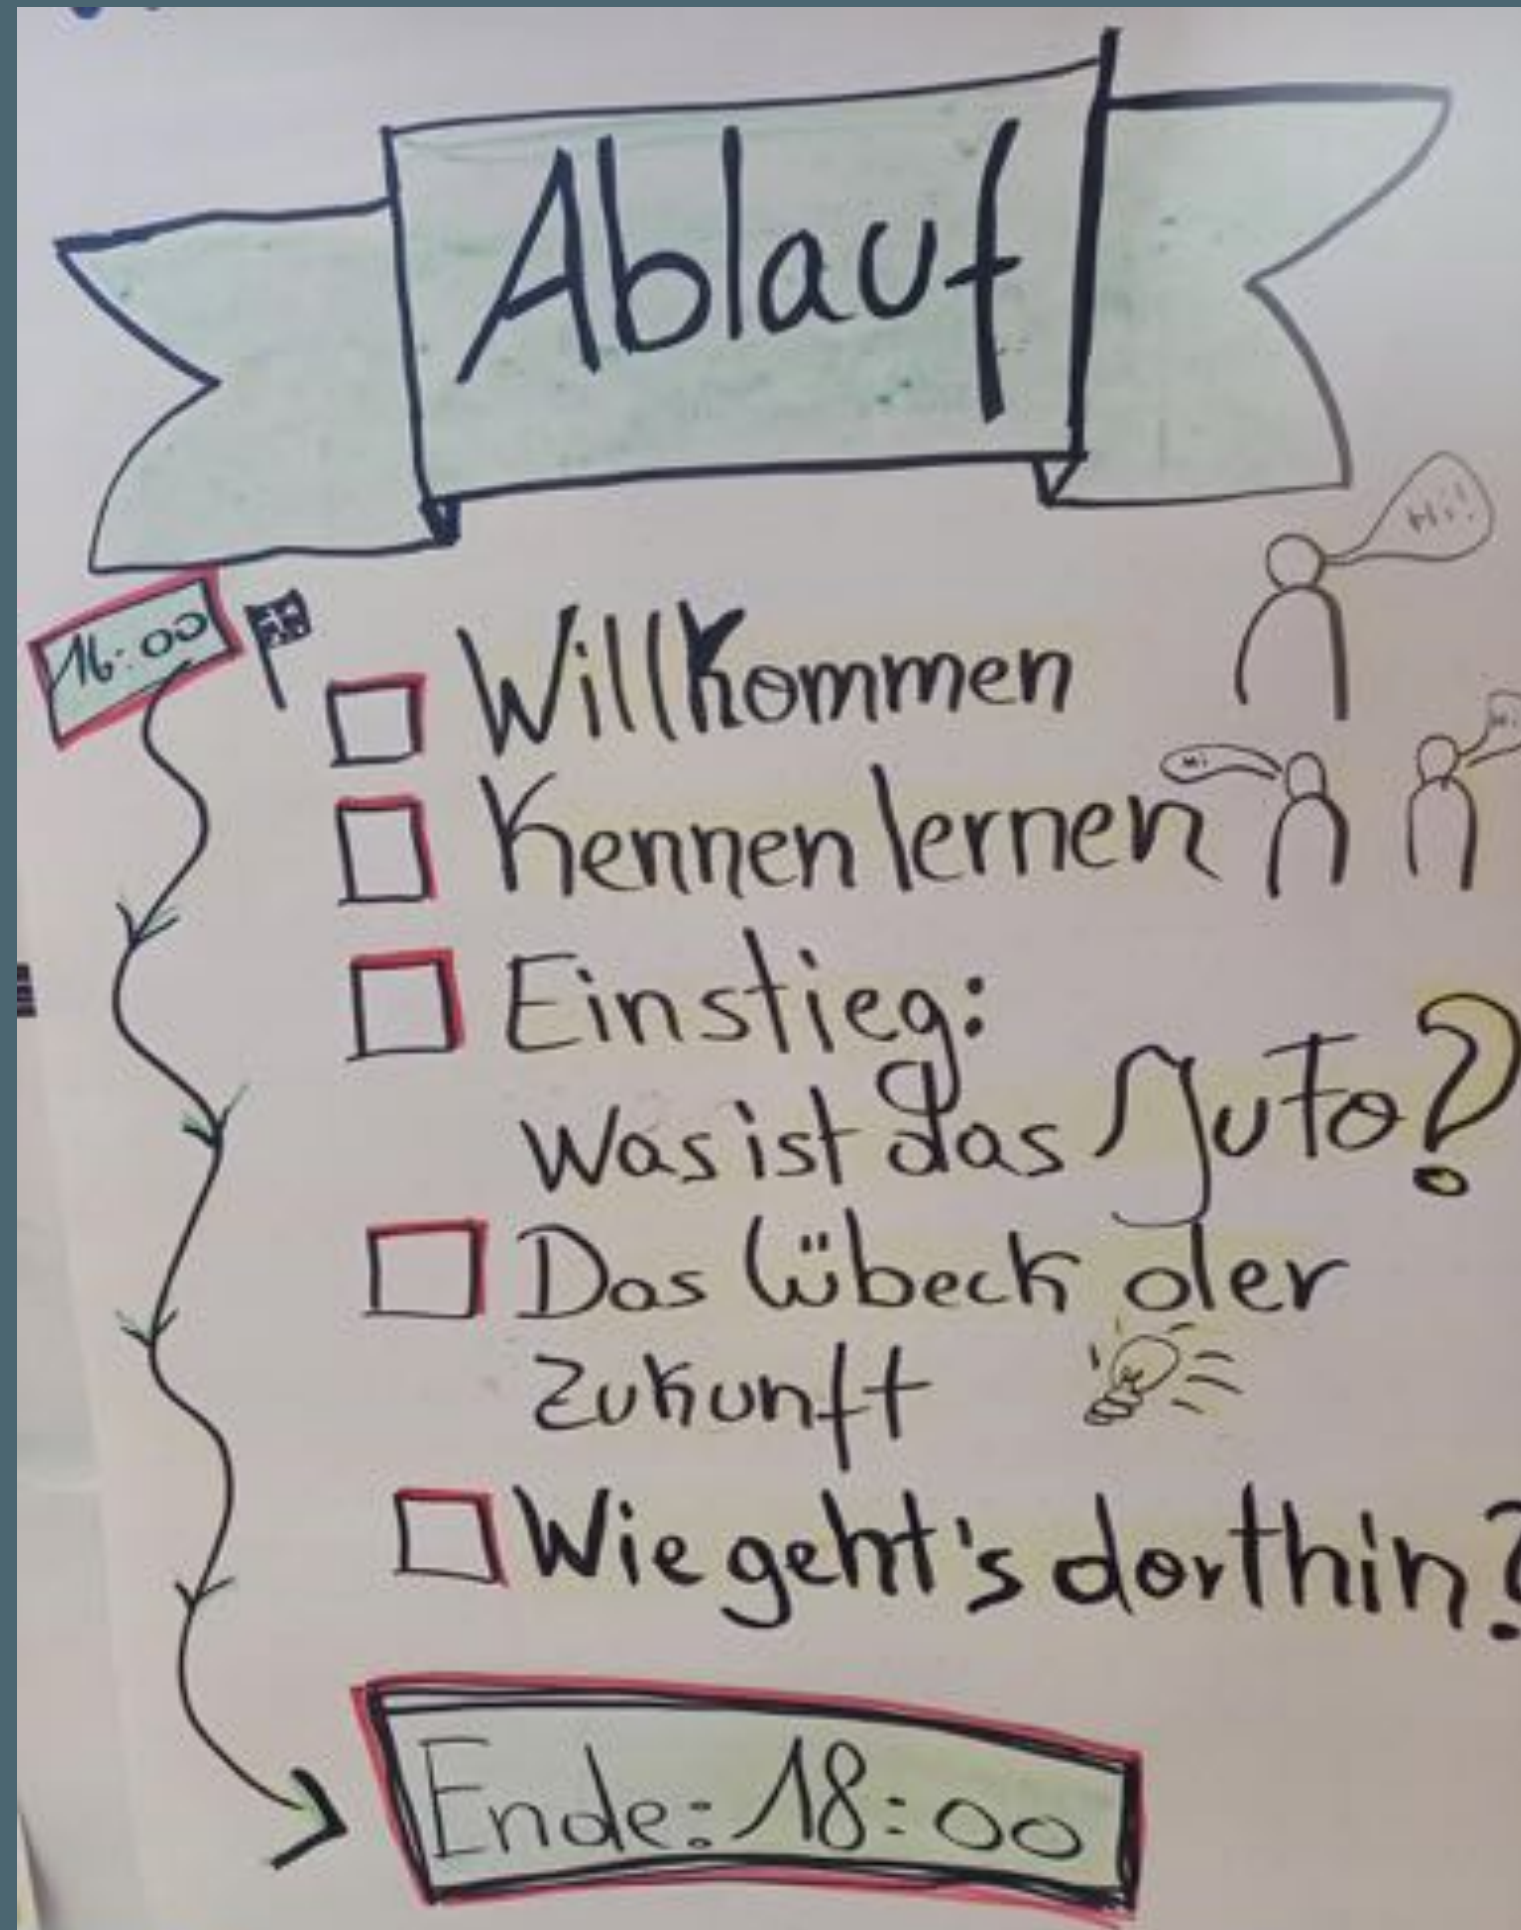 Ablauf
Hi!
16:00
Willkommen
Hi
Hi
Kennenlernen
Einstieg:
Was ist das Auto?
Das Lübeck der
Zukunft
Wie geht's dorthin?
Ende: 18:00